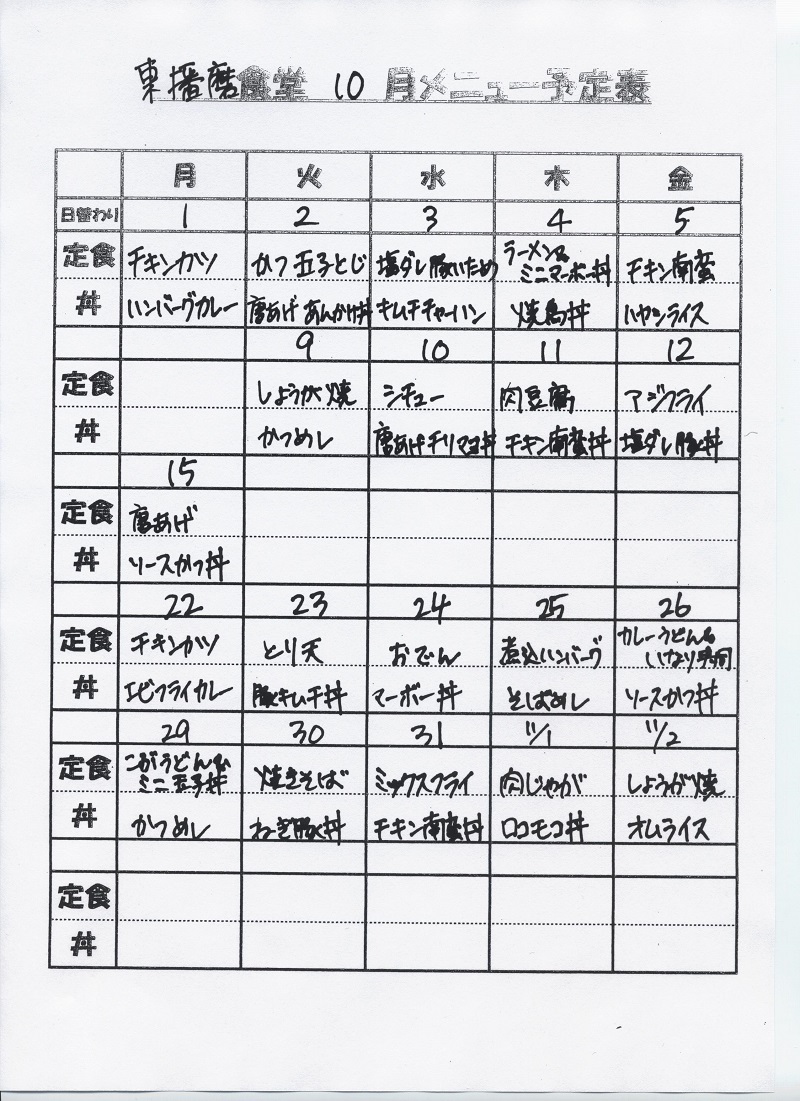 東播磨食堂 10 月メニュー予定表
月 火 水 木 金
日替わり 1 2 3 4 5
定食 チキンカツ かつ玉子とじ 塩ダレ豚いため ラーメン& ミニマーボー丼 チキン南蛮
丼 ハンバーグカレー 唐あげあんかけ丼 キムチチャーハン 焼鳥丼 ハヤシライス
9 10 11 12
定食 しょうが焼 シチュー 肉豆腐 アジフライ
丼 かつめし 唐あげチリマヨ丼 チキン南蛮丼 塩ダレ豚丼
15
定食 唐あげ
丼 ソースかつ丼
22 23 24 25 26
定食 チキンカツ とり天 おでん 煮込ハンバーグ カレーうどん& いなり寿司
丼 エビフライカレー 豚キムチ丼 マーボー丼 そばめし ソースかつ丼
29 30 31 11/1 11/2
定食 こぶうどん& ミニ玉子丼 焼きそば ミックスフライ 肉じゃが しょうが焼
丼 かつめし ねぎ豚丼 チキン南蛮丼 ロコモコ丼 オムライス
定食
丼